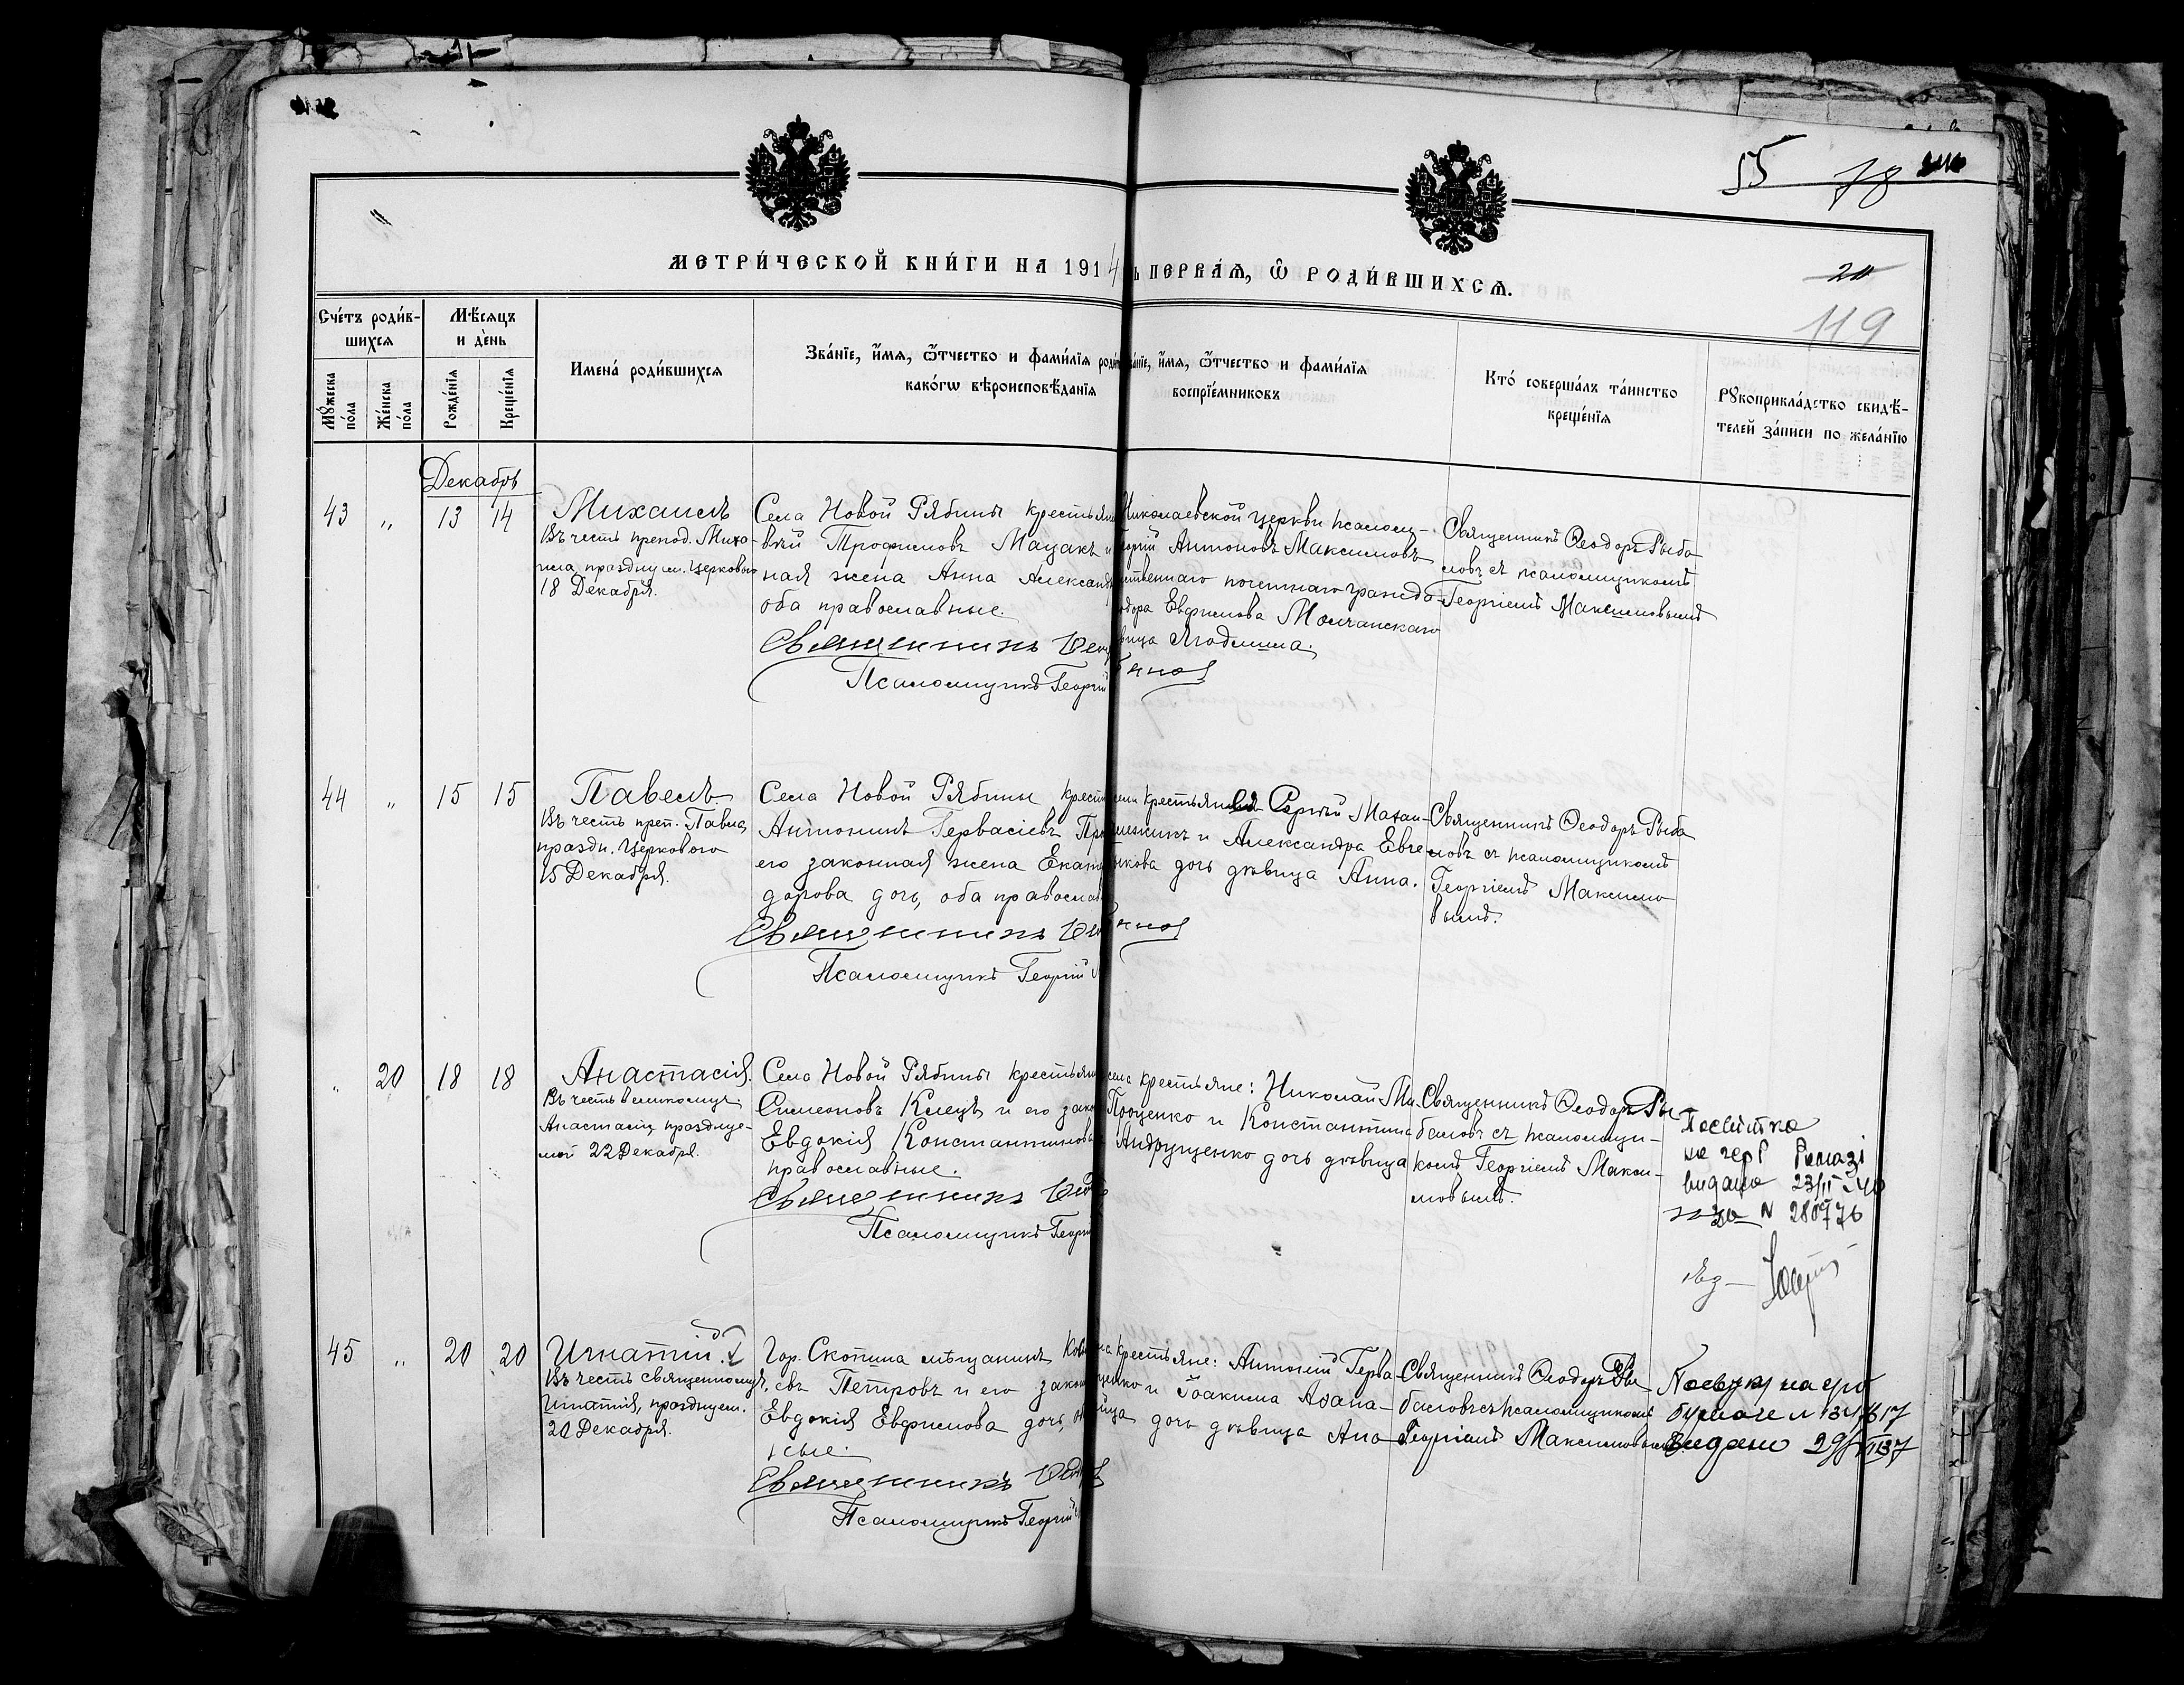 55 78
МЕТРИ́ЧЕСКОЙ КНИ́ГИ НА 1914 ПЕРВА́Ѧ, Ѽ РОДИ́ВШИХСѦ.
20
119
Сче́тъ роди́в-
шихсѧ
Мꙋ́жеска
по́ла
Же́нска
по́ла
Мѣ́сѧцъ
и де́нь
Рожде́нїѧ
Креще́нїѧ
Имена́ роди́вшихсѧ
Зва́нїе, и́мѧ, ѻ́тчество и фами́лїѧ роди
како́гѡ вѣроисповѣ́данїѧ
ва́нїе, и́мѧ, ѻ́тчество и фами́лїѧ
воспрїе́мниковъ
Кто́ соверша́лъ та́инство
креще́нїѧ
Рꙋкоприкла́дство свидѣ́-
телей за́писи по жела́нїю
Декабрь
43 „ 13 14
Михаилъ
Въ честь препод. Миха-
ила, празднуем. Церковію
18 Декабря.
Села Новой Рябины крестьяни
вій Трофимовъ Мацакъ и
ная жена Анна Александр
оба православные.
Священникъ Ѳео
Псаломщикъ Георгій
Николаевской церкви псаломщ-
оргій Антоновъ Максимовъ
мственнаго почетнаго гражда-
одора Евфимова Молчанскаго
вица Людмила.
Священникъ Ѳеодоръ Рыба
ловъ съ псаломщикомъ
Георгіемъ Максимовымъ
44 „ 15 15
Павелъ.
Въ честь преп. Павла,
праздн. Церковію
15 Декабря.
Села Новой Рябины крест
Антонинъ Гервасіевъ Про
его законная жена Екате
дорова дочь, оба правосла
Священникъ Ѳео
Псаломщикъ Георгій
села крестьяне Сергій
и Александра Евге-
дочь дѣвица Анна.
Священникъ Ѳеодоръ Рыба
ловъ съ псаломщикомъ
Георгіемъ Максимо
вымъ.
„ 20 18 18
Анастасія.
Въ честь великомуч.
Анастасіи, празднуе-
мой 22 Декабря.
Села Новой Рябины крестьян
Симеоновъ Клецъ и его зако
Евдокія Константинова
православные.
Священникъ Ѳеод
Псаломщикъ Георгі
села крестьяне: Николай Ми-
Проценко и Константина
Андрущенко дочь дѣвица
Священникъ Ѳеодоръ Ры
баловъ съ псаломщи-
комъ Георгіемъ Макси-
мовымъ.
на герб
видана 23/II 40
за № 280776
45 „ 20 20
Игнатій.
Въ честь священномуч.
Игнатія, празднуем.
20 Декабря.
Гор. Скопина мѣщанинъ
евъ Петровъ и его закон
Евдокія Евфимова дочь, о
ные.
Священникъ Ѳеодо
Псаломщикъ Георгій
крестьяне: Антоній Герва-
ценко и Іоакима Аѳана-
дочь дѣвица
Священникъ Ѳеодоръ Ры
баловъ съ псаломщикомъ
Георгіемъ Максимовымъ
на герб
бумаге
видано